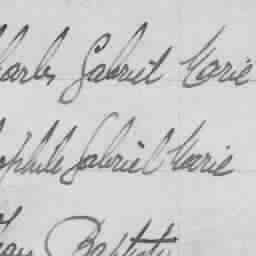 Charles Gabriel Marie
ophile Gabriel Marie
Jean Baptiste